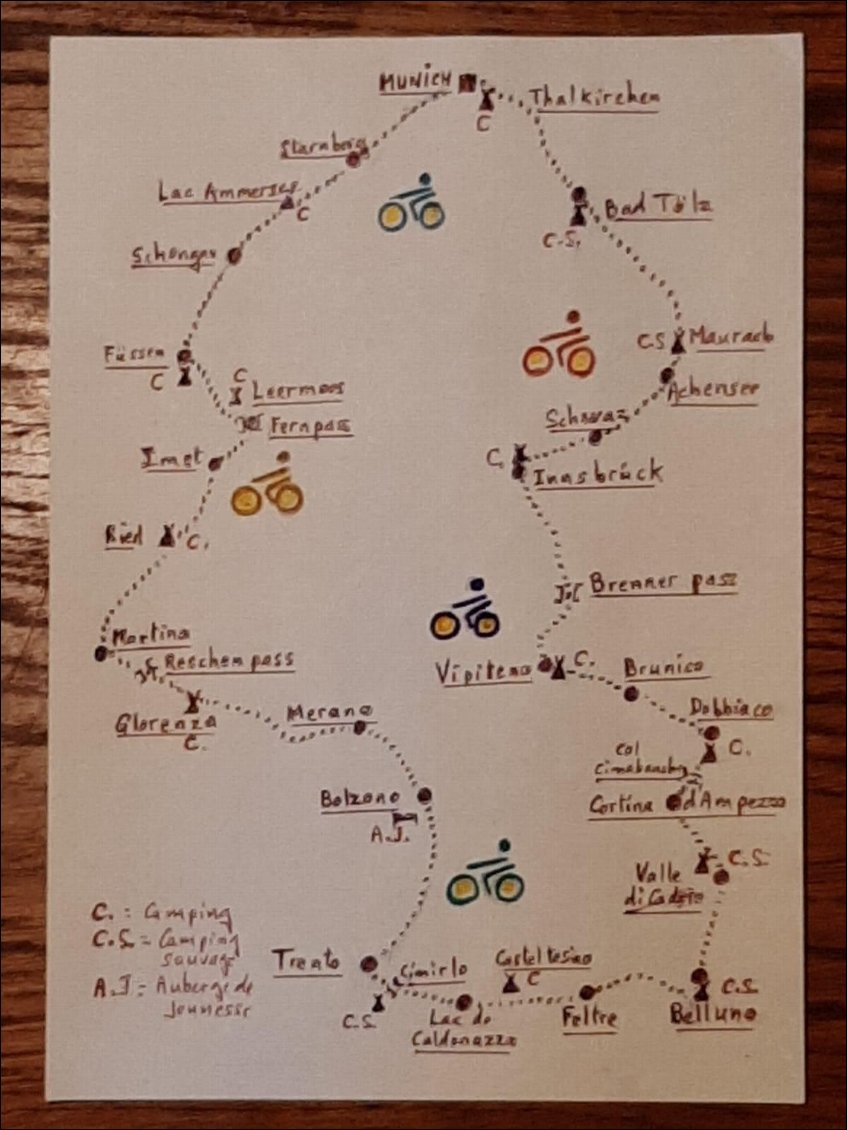 MUNICH
Thalkirchen
C
Starnberg
Lac Ammersee
C
Bad Tölz
C.S.
Schongau
C.S Maurach
Füssen
C
C
Leermoos
Achensee
Fernpass
Schwaz
Imst
C.
Innsbrück
Ried
C.
Brenner pass
Martina
Reschen pass
Vipiteno
C.
Brunico
Glorenza
C.
Merano
Dobbiaco
C.
Col
Cortina d'Ampezzo
Bolzano
A.J.
C.S.
Valle
di Cadore
C. = Camping
C.S. = Camping
sauvage
A.J = Auberge de
Jeunesse
Trento
Cimirlo
Casteltesino
C
C.S.
C.S.
Lac de
Caldonazzo
Feltre
Belluno